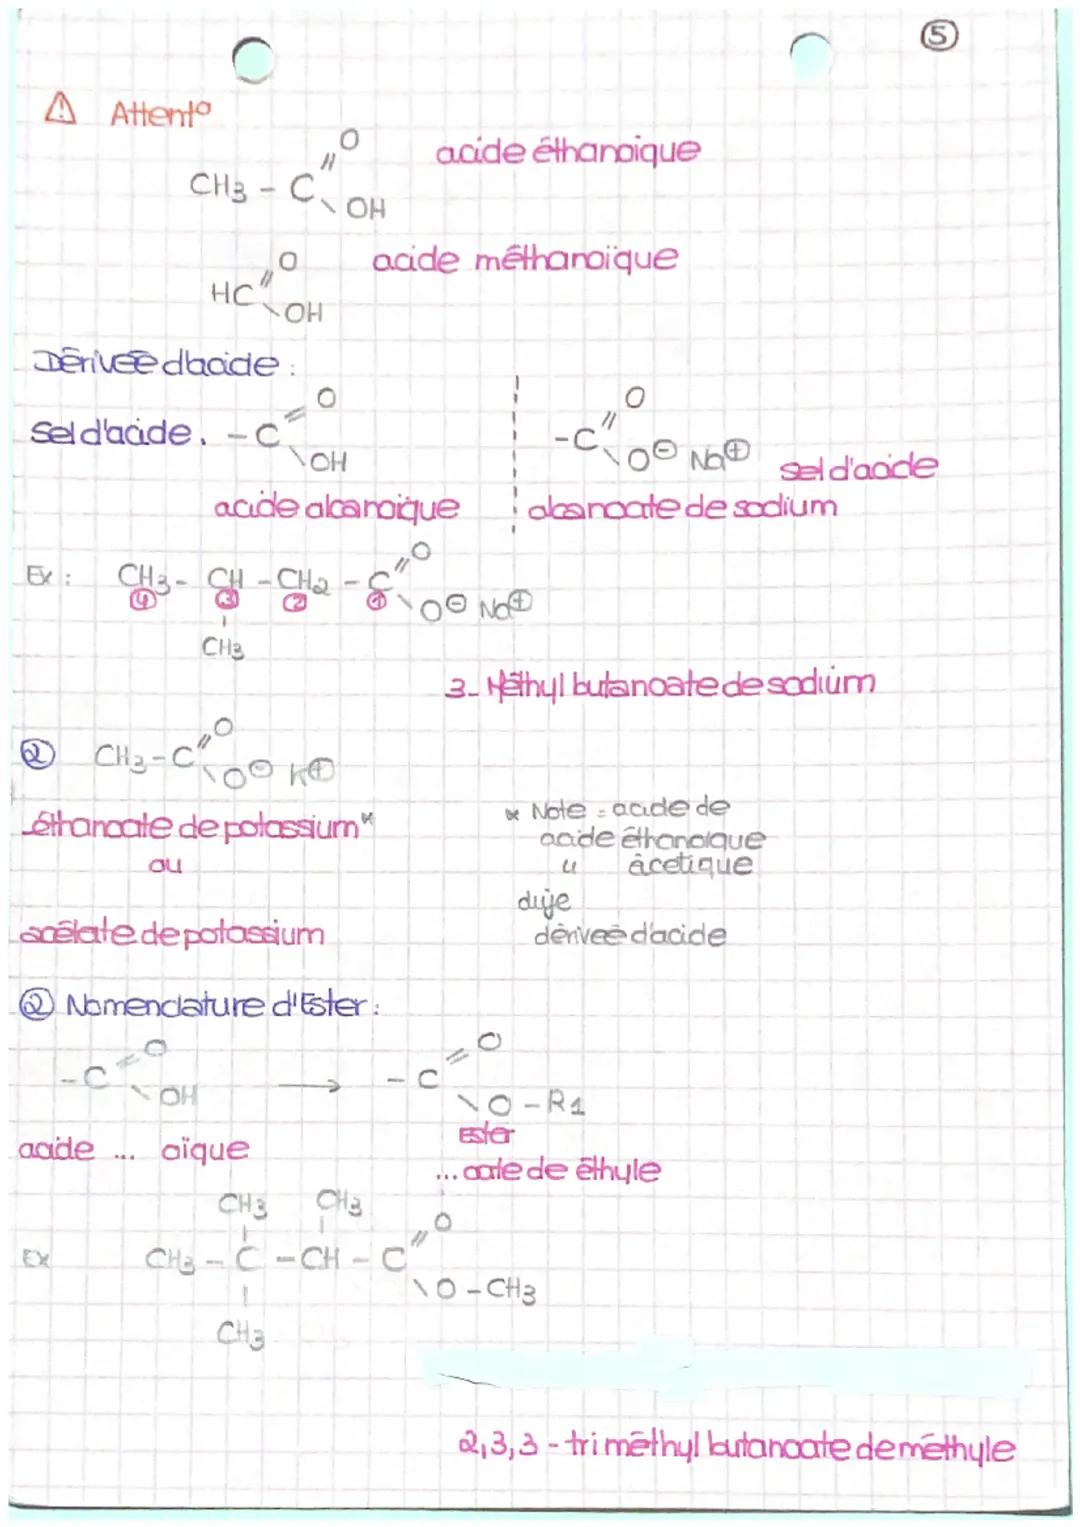 5
⚠ Attent°
O
CH3 - C
OH
acide éthanoique
O
HC
OH
acide méthanoïque
Dérivée d'acide :
Sel d'acide. - C
O
OH
- C
O
O⊖ Na⊕
sel d'acide
acide alcanoïque
alcanoate de sodium
Ex : CH3 - CH - CH2 - C
O
O⊖ Na⊕
4 3 2 1
CH3
3- Méthyl butanoate de sodium
② CH3 - C
O
O⊖ K⊕
éthanoate de potassium*
ou
acétate de potassium
* Note : acide de
acide éthanoique
" àcetique
dérivée d'acide
② Nomenclature d'Ester :
- C
O
OH
→ - C
O
O - R1
acide ... oïque
Ester
... oate de éthyle
CH3 CH3
Ex CH3 - C - CH - C
O
O - CH3
CH3
2,3,3 - triméthyl butanoate de méthyle